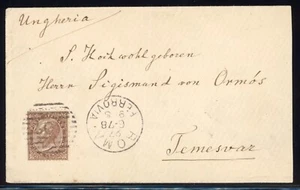 Ungheria
S. Hochwohlgeboren
Herrn Sigismund von Ormós
ROMA
FERROVIA
6-78
Temesvar